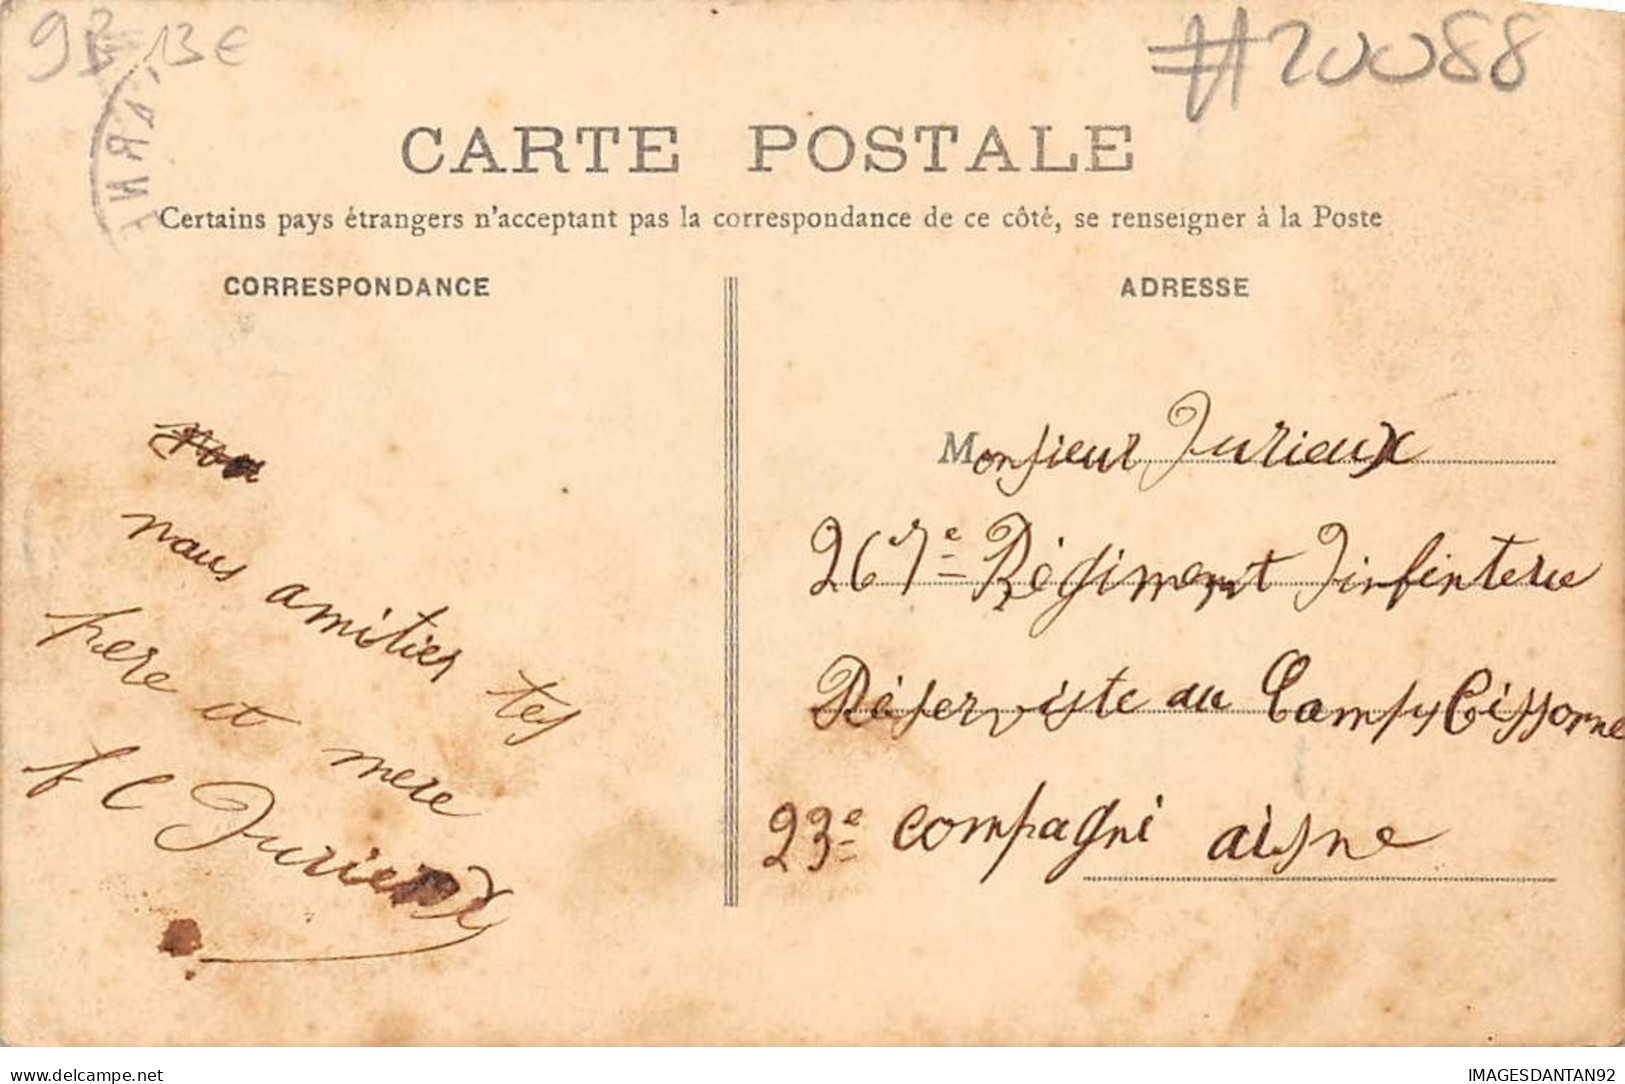 93 13€
#20088
CARTE POSTALE
Certains pays étrangers n'acceptant pas la correspondance de ce côté, se renseigner à la Poste
CORRESPONDANCE
nous amitier tes
pere et mere
f l Jurieux
ADRESSE
Monsieur Jurieux
267e Régiment Jinfinterie
Réserviste au Camps Cissorne
23e compagni aisne
delcampe.net
IMAGESDANTAN92